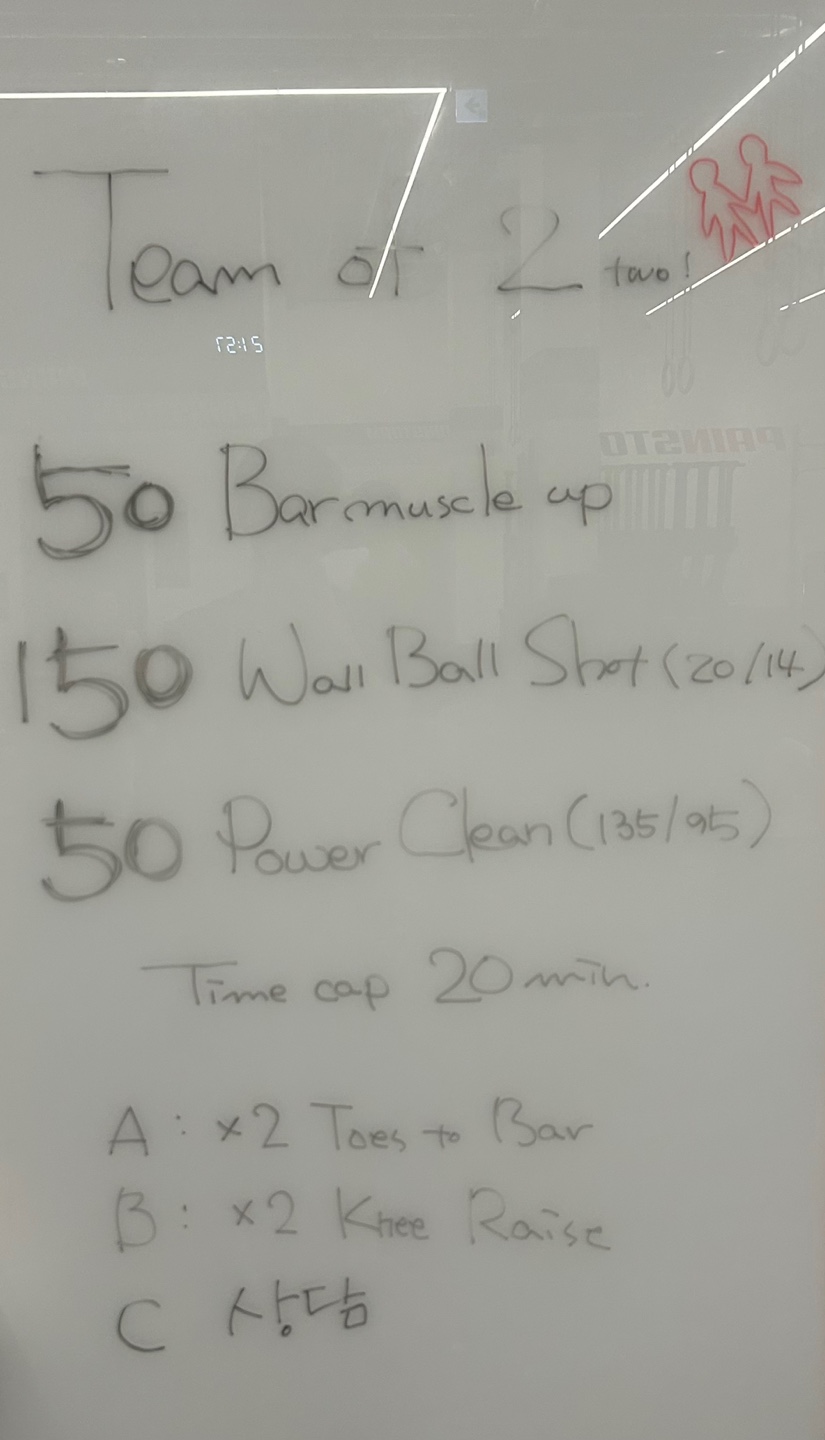 Team of 2 two!
50 Bar muscle up
150 Wall Ball Shot (20/14)
50 Power Clean (135/95)
Time cap 20 min.
A : ×2 Toes to Bar
B : ×2 Knee Raise
C 상담